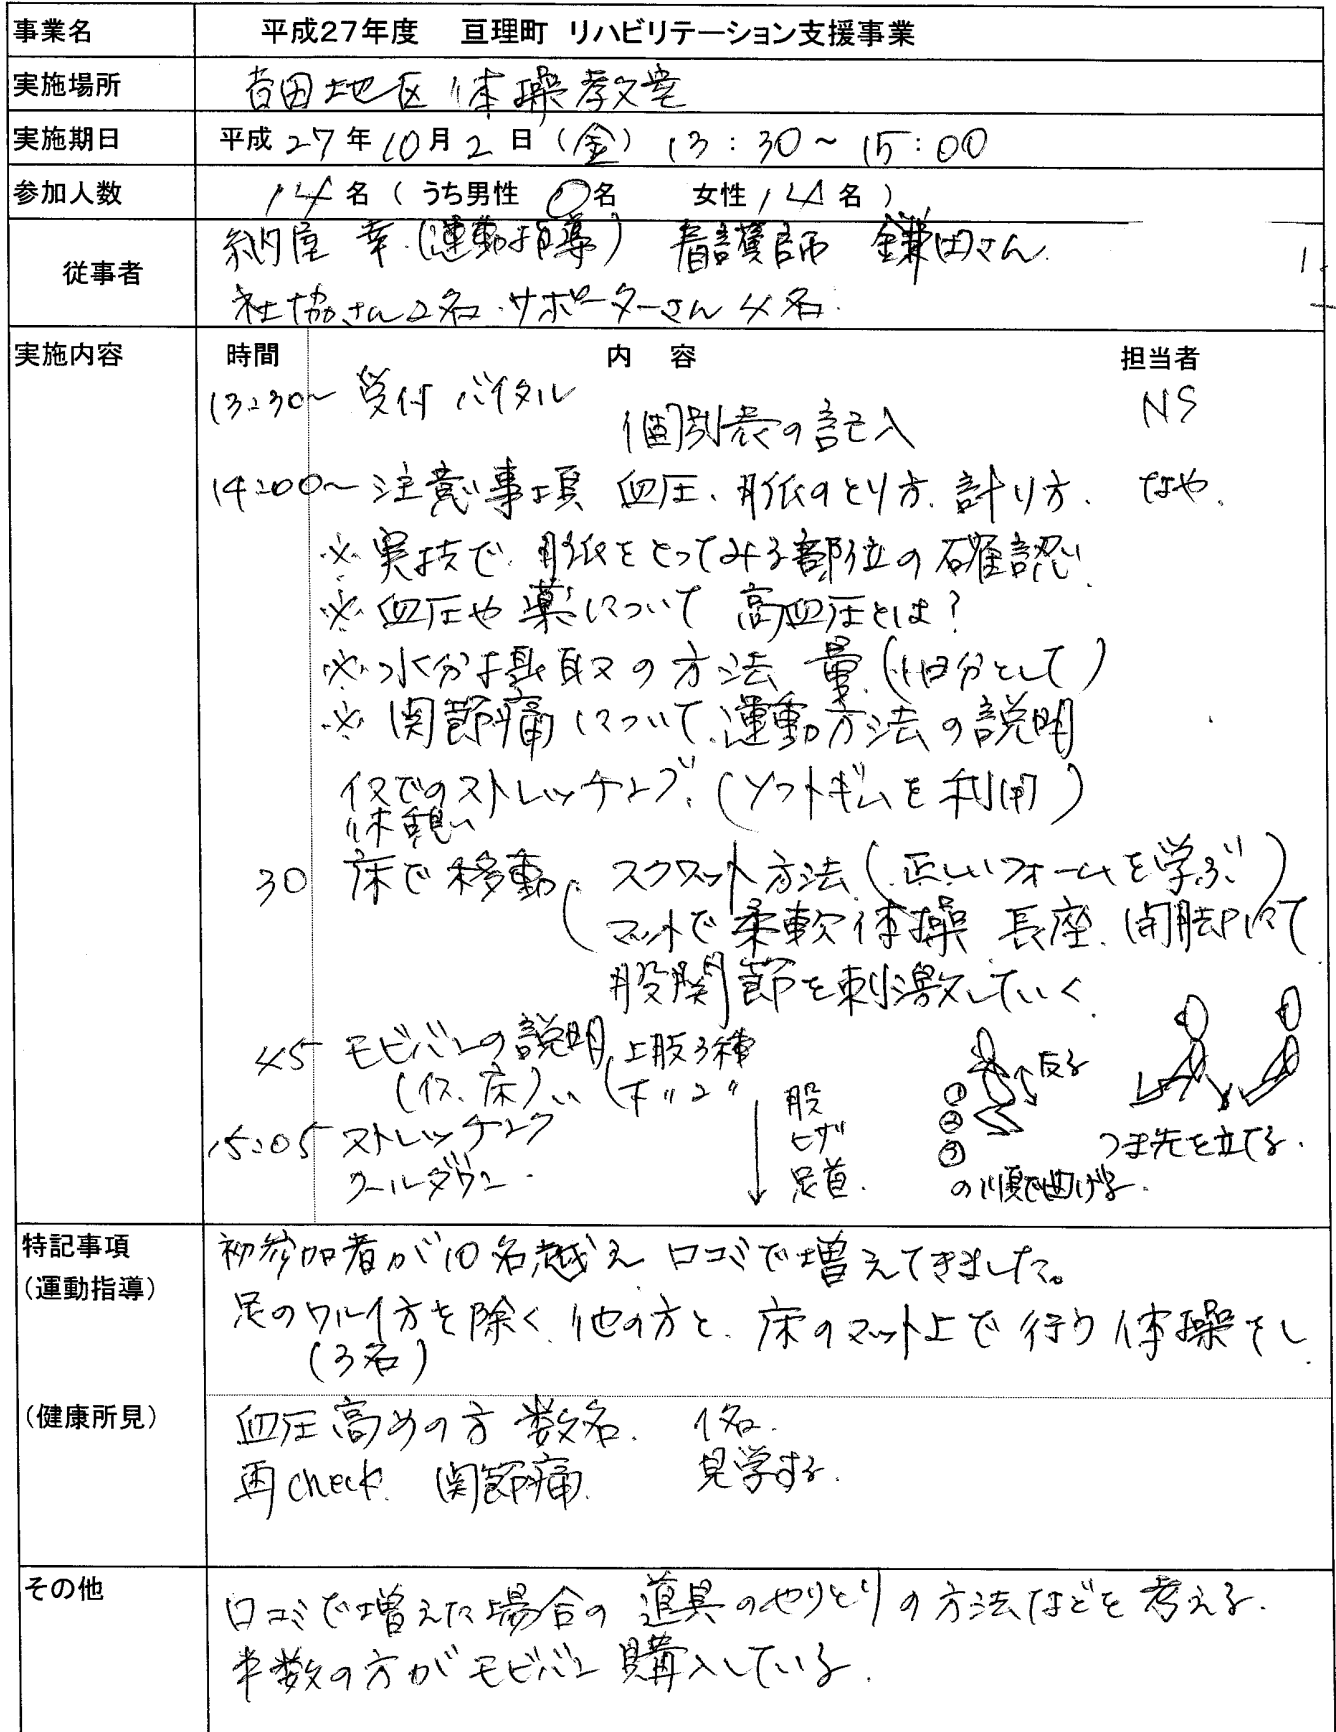 事業名 平成27年度 亘理町 リハビリテーション支援事業
実施場所 吉田地区 体操教室
実施期日 平成 27 年 10 月 2 日 (金) 13:30~15:00
参加人数 14 名 ( うち男性 0名 女性 14 名 )
従事者 納屋 幸 (運動指導) 看護師 鎌田さん
社協さん2名・サポーターさん4名
実施内容 時間 内 容 担当者
13:30~ 受付 バイタル NS
個別表の記入
14:00~ 注意事項 血圧、脈のとり方、計り方、 なや
※ 実技で脈をとってみる部位の確認
※ 血圧や薬について 高血圧とは?
※ 水分摂取の方法 量
※ 関節痛について、運動方法の説明
イスでのストレッチング、(ソフトギムを利用)
休憩
30 床で移動 スクワット方法 (正しいフォームを学ぶ)
マットで柔軟体操 長座、開脚にて
股関節を刺激していく
45 モビバンの説明 上肢3種
(イス、床) 下〃2〃
股
ヒザ
足首
① ② ③ 反る
の順で曲げる。
つま先を立てる。
15:05 ストレッチング
クールダウン
特記事項 初参加者が10名越え 口コミで増えてきました。
(運動指導) 足のワルイ方を除く、他の方と、床のマット上で行う体操をし
(3名)
(健康所見) 血圧高めの方 数名、 1名、
再check、関節痛、 見学する。
その他 口コミで増えた場合の道具のやりとりの方法などを考える。
半数の方がモビバン購入している。